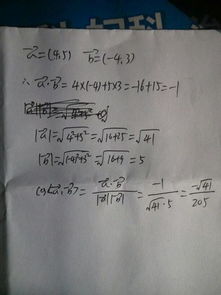 a⃗=(4,5) b⃗=(-4,3)
∴ a⃗·b⃗=4×(-4)+5×3=-16+15=-1
|a⃗|=√4²+5²=√16+25=√41
|b⃗|=√(-4)²+3²=√16+9=5
cos<a⃗,b⃗>=a⃗·b⃗/|a⃗||b⃗|=-1/√41·5=-√41/205